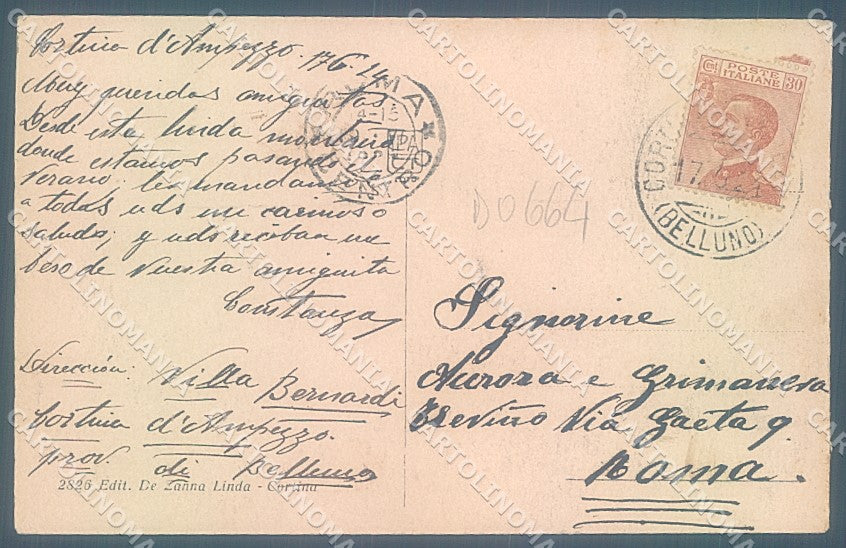 Cortina d'Ampezzo. 17 6 24
Muy queridas amiguitas
Desde esta linda montaña
donde estamos pasando el
verano, les mandamos
a todas uds un cariñoso
saludo, y uds reciban un
beso de vuestra amiguita
Constanza
Dirección: Villa Bernardi
Cortina d'Ampezzo.
prov. di Belluno
2826 Edit. De Zanna Linda - Cortina
ROMA
CENTRO
D0664
POSTE
ITALIANE
Cent 30
CORT
17
(BELLUNO)
Signorine
Aurora e Grimanera
Treviño Via Gaeta 9
Roma.
CARTOLINOMANIA